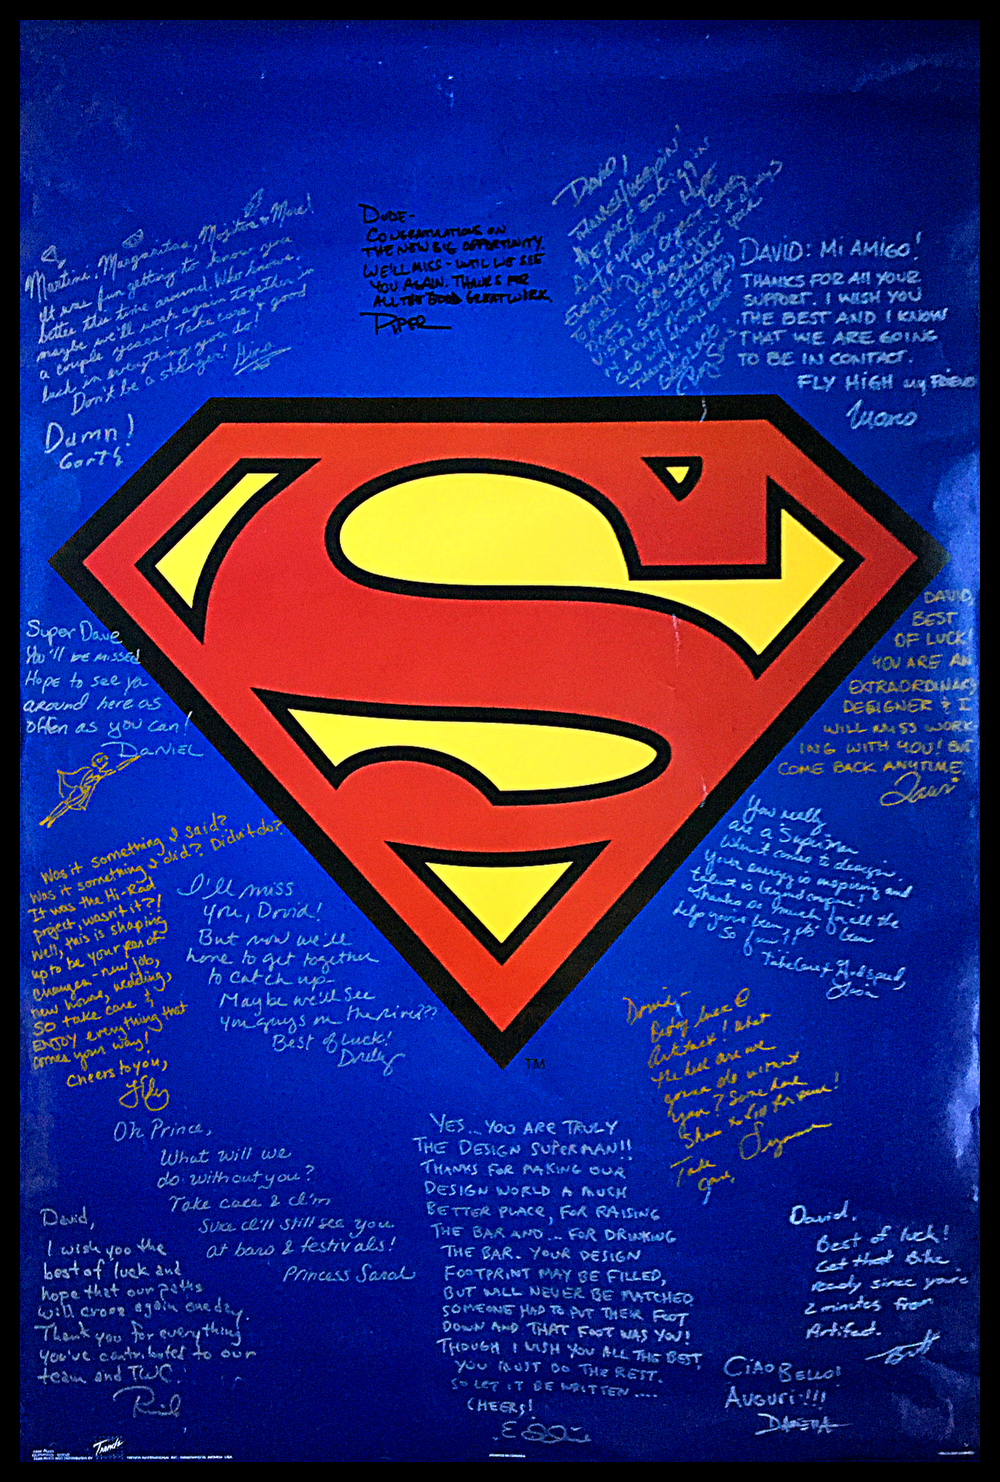 Martinis, Margaritas, Mojitos & More!
It was fun getting to know you
better this time around. Who knows,
maybe we'll work again together in
a couple years! Take care & good
luck in everything you do!
Don't be a stranger! Gina
Damn!
Garth
DUDE-
CONGRATULATIONS ON
THE NEW BIG OPPORTUNITY.
WE'LL MISS - UNTIL WE SEE
YOU AGAIN. THANKS FOR
ALL THE GOOD GREAT WORK.
PIPER
DAVID,
DAVID: MI AMIGO!
THANKS FOR All YOUR
SUPPORT. I WISH YOU
THE BEST AND I KNOW
THAT WE ARE GOING
TO BE IN CONTACT.
FLY HIGH my FRIEND
Super Dave
You'll BE MISSED
Hope to see ya
around here as
often as you can!
DANIEL
DAVID,
BEST
OF LUCK!
YOU ARE AN
EXTRAORDINARY
DESIGNER & I
WILL MISS WORK
ING WITH YOU! BUT
COME BACK ANYTIME.
You really
are a Superman
when it comes to design.
Your energy is inspiring and
talent is beyond compare!
Thanks so much for all the
help you've been, it's been
So fun!!
Take Care & Godspeed,
Lisa
Was it something I said?
Was it something I did? Didn't do?
It was the Hi-Rad
project, wasn't it?!
Well, this is shaping
up to be your year of
changes - new job,
new house, wedding,
SO take care &
ENJOY everything that
comes your way!
Cheers to you,
I'll miss
you, David!
But now we'll
have to get together
to catch up.
Maybe we'll see
you guys on the river??
Best of luck!
David,
Artifact! What
the hell are we
gonna do without
you? Some dave
Take
Care,
Oh Prince,
What will we
do without you?
Take care & I'm
Sure I'll still see you
at bars & festivals!
Princess Sarah
YES... YOU ARE TRULY
THE DESIGN SUPERMAN!!
THANKS FOR MAKING OUR
DESIGN WORLD A MUCH
BETTER PLACE, FOR RAISING
THE BAR AND... FOR DRINKING
THE BAR. YOUR DESIGN
FOOTPRINT MAY BE FILLED,
BUT WILL NEVER BE MATCHED
SOMEONE HAD TO PUT THEIR FOOT
DOWN AND THAT FOOT WAS YOU!
THOUGH I WISH YOU ALL THE BEST,
YOU MUST DO THE REST.
SO LET IT BE WRITTEN....
CHEERS!
David,
I wish you the
best of luck and
hope that our paths
will cross again one day.
Thank you for everything
you've contributed to our
team and TWC!
David.
Best of luck!
Get that Bike
ready since you're
2 minutes from
Artifact.
CIAO BELLO!
AUGURI!!!
TM
Trends